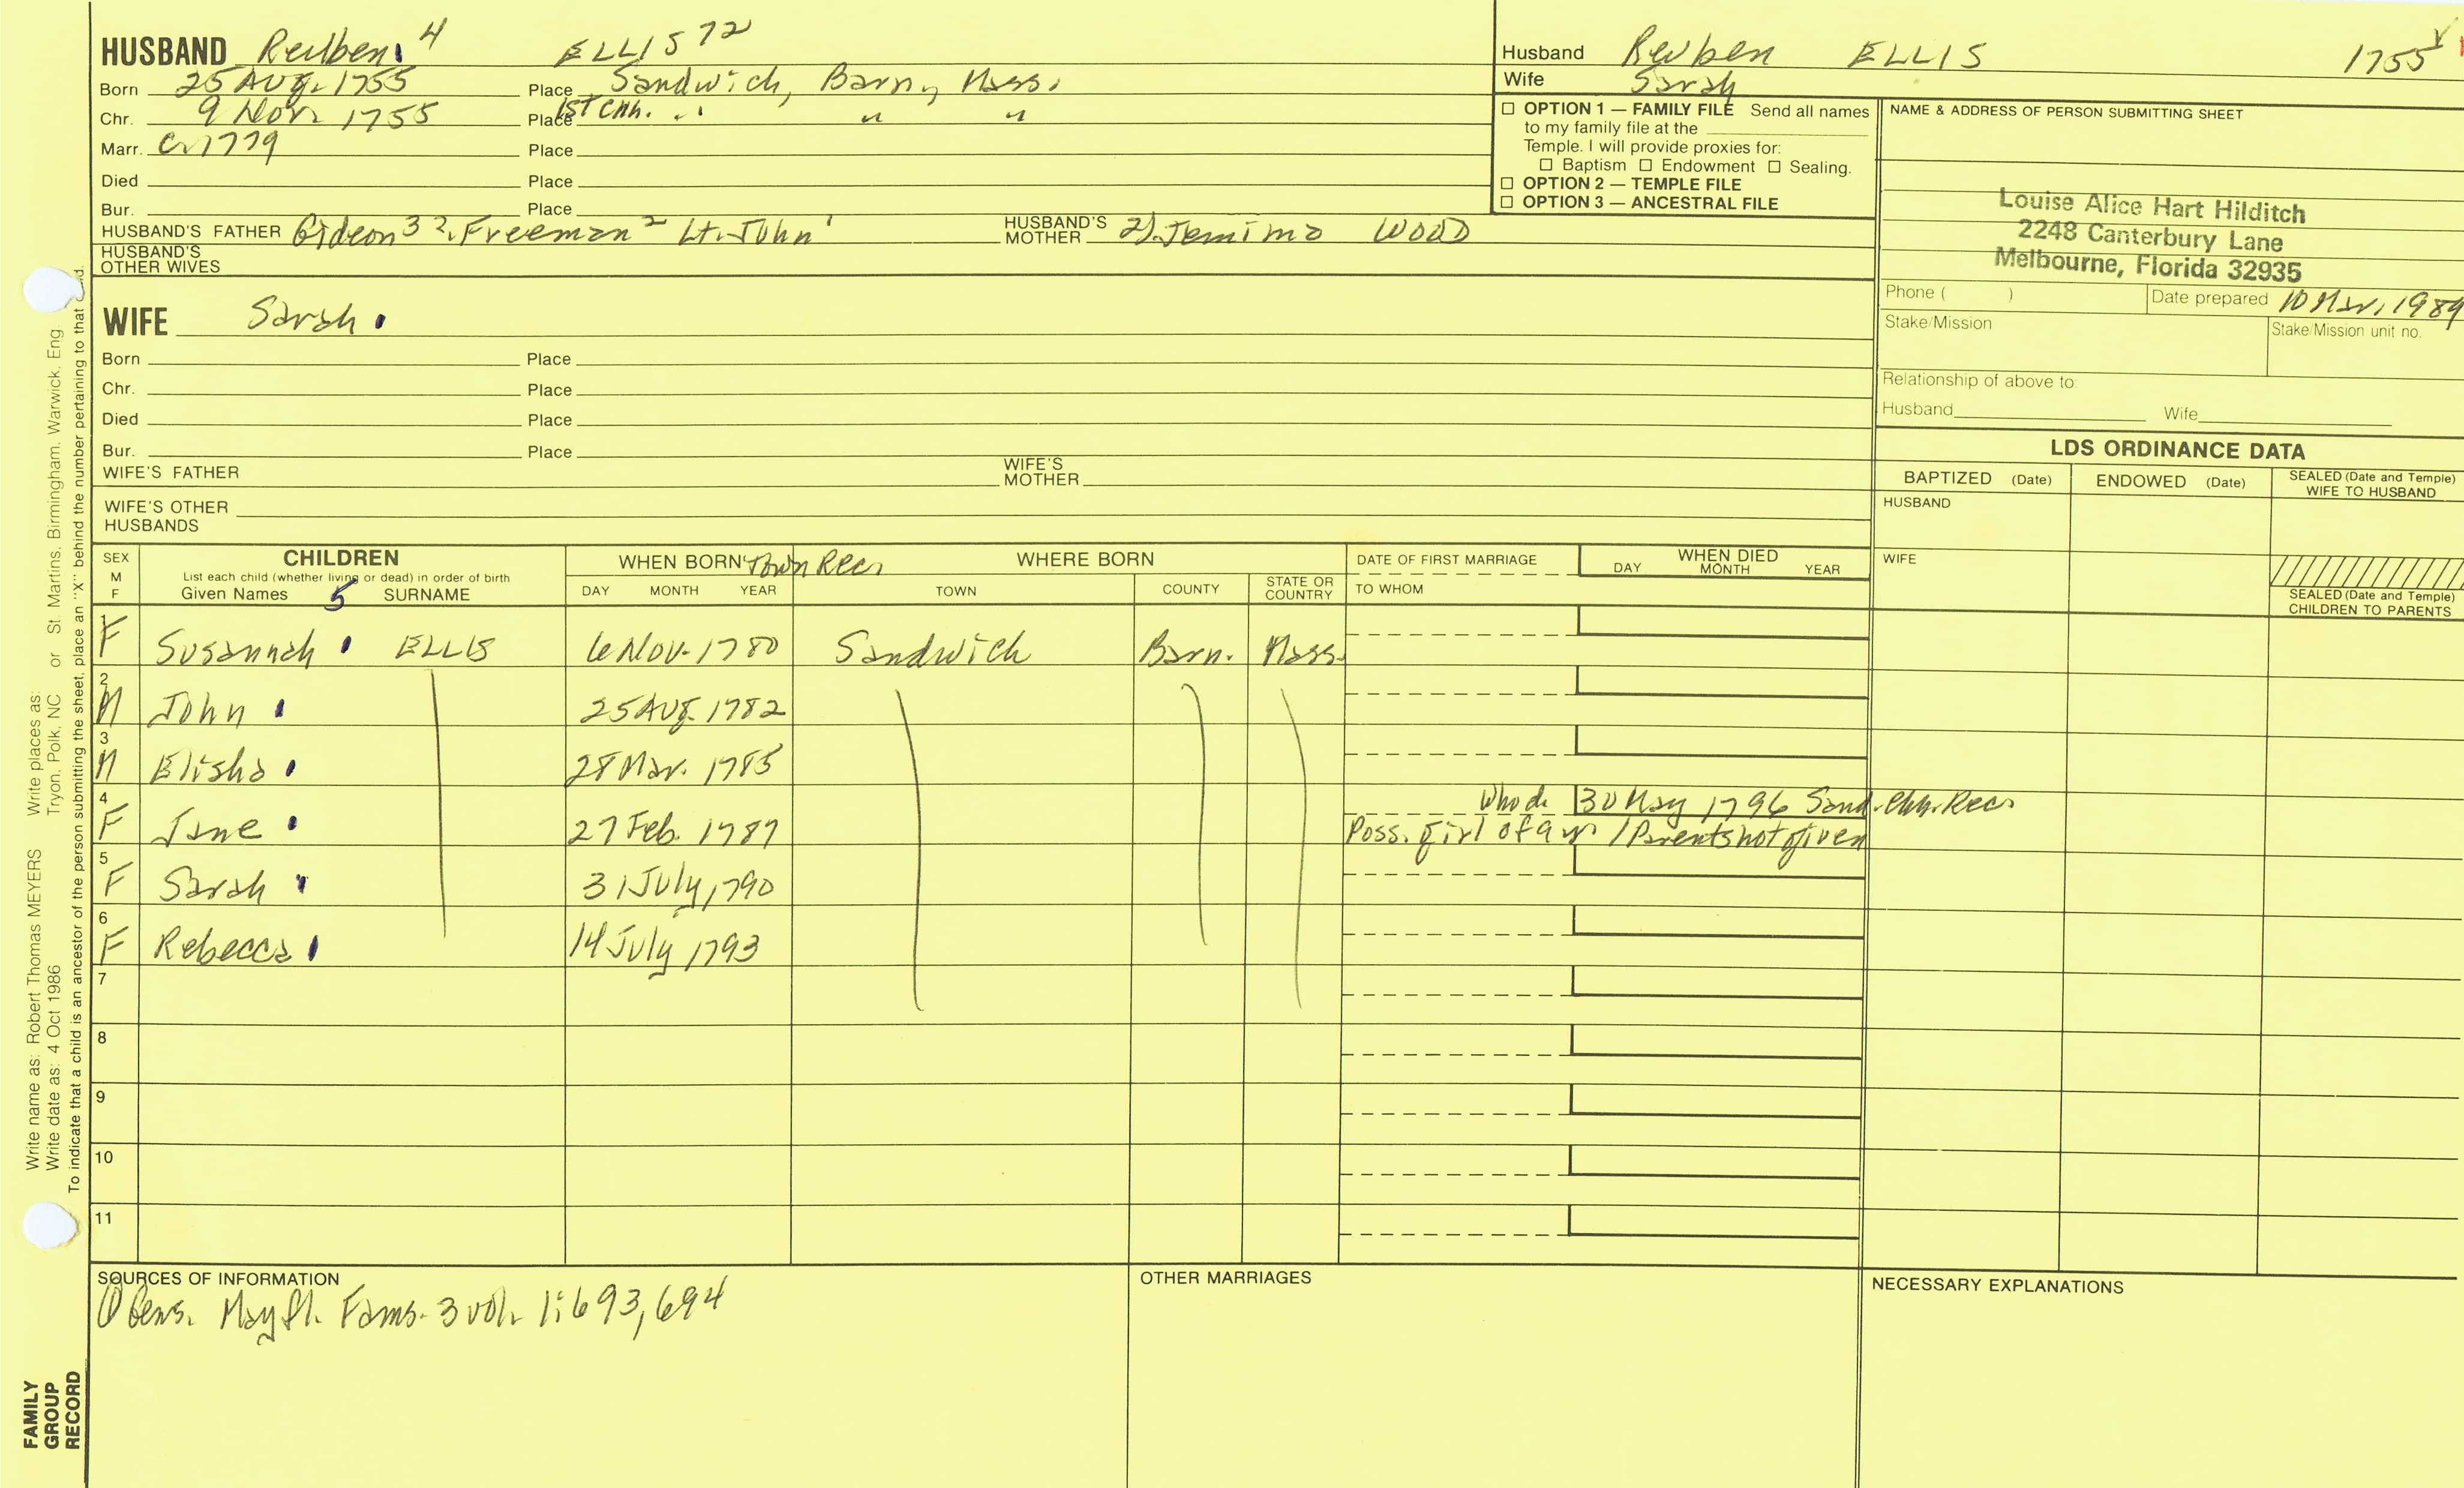 HUSBAND Reuben 4 ELLIS 72
Born 25 Aug. 1755 Place Sandwich, Barn, Mass.
Chr. 9 Nov. 1755 Place 1ST Chh. " " "
Marr. C. 1779 Place
Died Place
Bur. Place
HUSBAND'S FATHER Gideon 3 2. Freeman 2 Lt. John 1 HUSBAND'S MOTHER 2). Jemima WOOD
HUSBAND'S OTHER WIVES
Husband Reuben ELLIS 1755
Wife Sarah
☐ OPTION 1 — FAMILY FILE Send all names
to my family file at the
Temple. I will provide proxies for:
☐ Baptism ☐ Endowment ☐ Sealing.
☐ OPTION 2 — TEMPLE FILE
☐ OPTION 3 — ANCESTRAL FILE
NAME & ADDRESS OF PERSON SUBMITTING SHEET
Louise Alice Hart Hilditch
2248 Canterbury Lane
Melbourne, Florida 32935
Phone ( ) Date prepared 10 Mar. 1989
Stake/Mission Stake/Mission unit no.
Relationship of above to:
Husband Wife
WIFE Sarah
Born Place
Chr. Place
Died Place
Bur. Place
WIFE'S FATHER WIFE'S MOTHER
WIFE'S OTHER HUSBANDS
LDS ORDINANCE DATA
BAPTIZED (Date) ENDOWED (Date) SEALED (Date and Temple) WIFE TO HUSBAND
HUSBAND
WIFE
SEALED (Date and Temple) CHILDREN TO PARENTS
SEX M F
CHILDREN
List each child (whether living or dead) in order of birth
Given Names 5 SURNAME
WHEN BORN Town Rec.
DAY MONTH YEAR
WHERE BORN
TOWN COUNTY STATE OR COUNTRY
DATE OF FIRST MARRIAGE
TO WHOM
WHEN DIED
DAY MONTH YEAR
1 F Susannah ELLIS 6 Nov. 1780 Sandwich Barn. Mass.
2 M John 25 Aug. 1782
3 M Elisha 28 Mar. 1785
4 F Jane 27 Feb. 1787 Who d. 30 May 1796 Sand. Chh. Rec.
Poss. girl of 9 yr / Parents not given
5 F Sarah 31 July 1790
6 F Rebecca 14 July 1793
7
8
9
10
11
SOURCES OF INFORMATION
Gens. Mayfl. Fams. 3 vol. 1:693,694
OTHER MARRIAGES
NECESSARY EXPLANATIONS
Write name as: Robert Thomas MEYERS Write places as: Tryon, Polk, NC or St. Martins, Birmingham, Warwick, Eng
Write date as: 4 Oct 1986
To indicate that a child is an ancestor of the person submitting the sheet, place an "X" behind the number pertaining to that
FAMILY
GROUP
RECORD